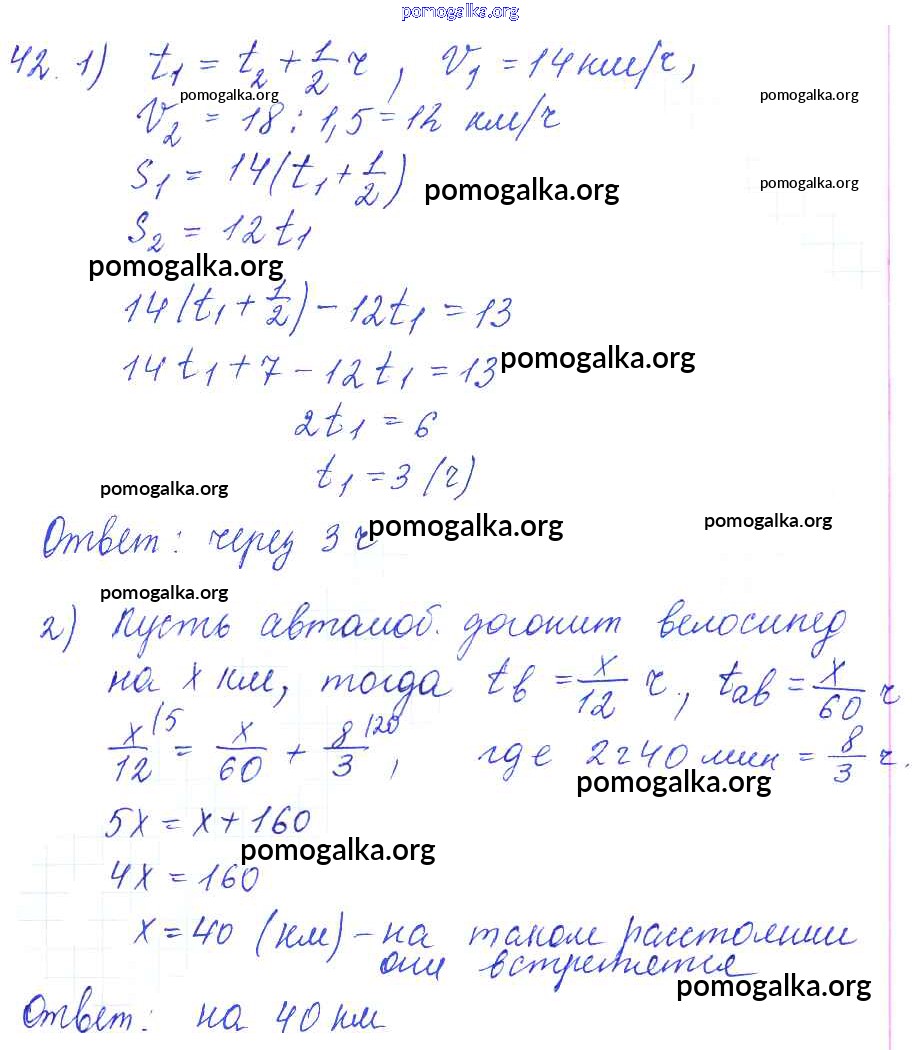 pomogalka.org
42. 1) t₁ = t₂ + 1/2 ч, V₁ = 14 км/ч,
pomogalka.org pomogalka.org
V₂ = 18 : 1,5 = 12 км/ч
S₁ = 14(t₁ + 1/2) pomogalka.org pomogalka.org
S₂ = 12t₁
pomogalka.org
14(t₁ + 1/2) - 12t₁ = 13
14t₁ + 7 - 12t₁ = 13 pomogalka.org
2t₁ = 6
t₁ = 3 (ч)
pomogalka.org
Ответ: через 3 ч pomogalka.org pomogalka.org
pomogalka.org
2) Пусть автомоб. догонит велосипед
на x км, тогда tв = x/12 ч, tав = x/60 ч
x/12 |5 = x/60 + 8/3 |20, где 2ч40 мин = 8/3 ч.
pomogalka.org
5x = x + 160
pomogalka.org
4x = 160
x = 40 (км) – на таком расстоянии
они встретятся
pomogalka.org
Ответ: на 40 км